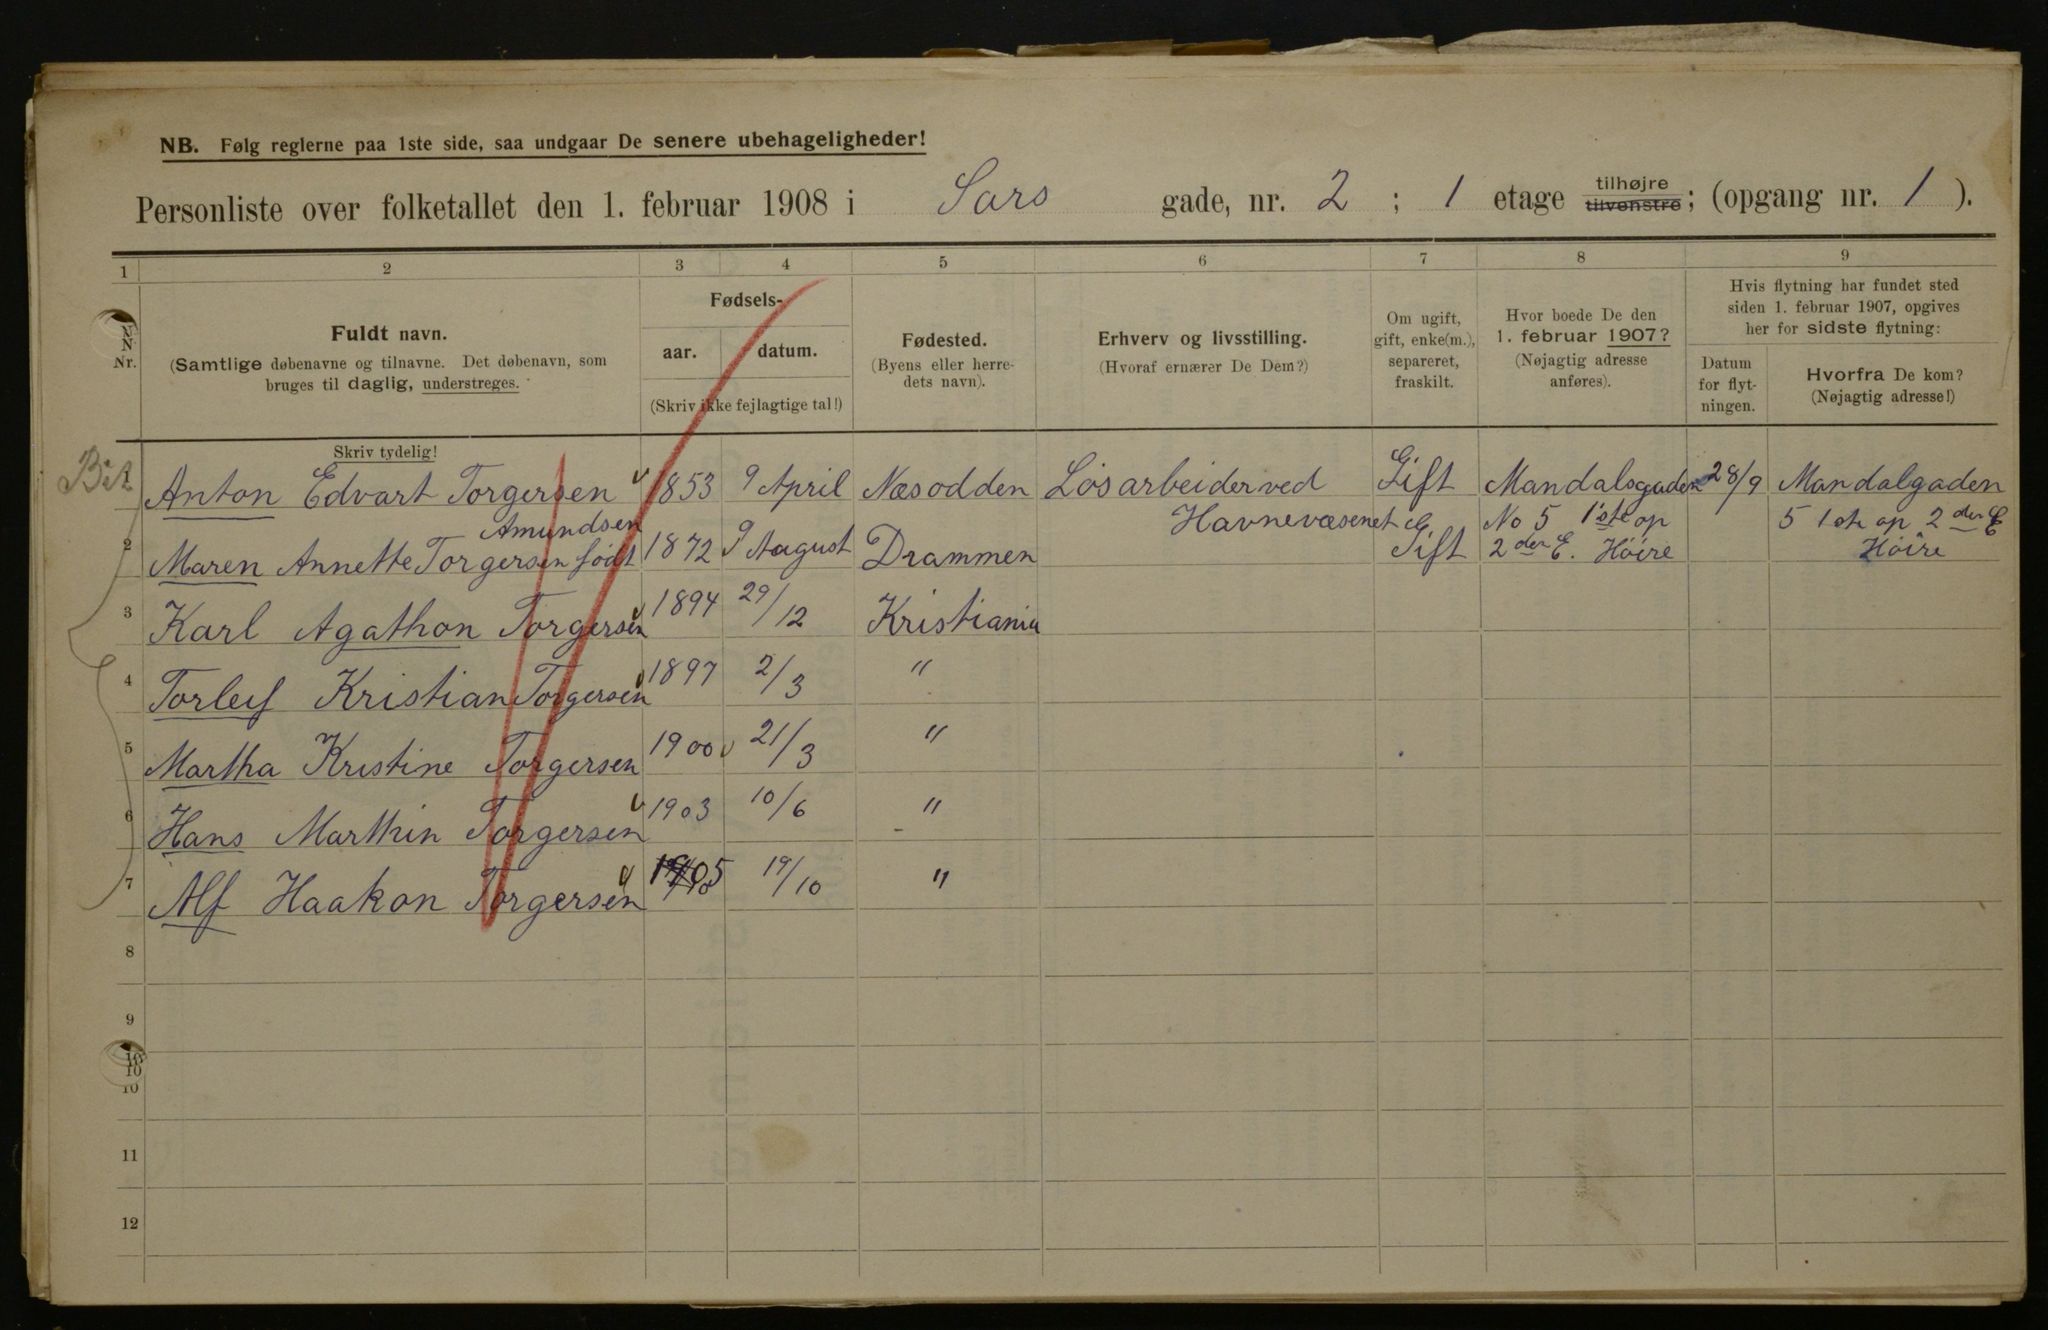 NB. Følg reglerne paa 1ste side, saa undgaar De senere ubehageligheder!
Personliste over folketallet den 1. februar 1908 i Sars gade, nr. 2 ; 1 etage tilhøjre tilvenstre; (opgang nr. 1 ).
1 2 3 4 5 6 7 8 9
Nr.
Fuldt navn.
(Samtlige døbenavne og tilnavne. Det døbenavn, som
bruges til daglig, understreges.
Fødsels-
aar. datum.
(Skriv ikke fejlagtige tal!)
Fødested.
(Byens eller herre-
dets navn).
Erhverv og livsstilling.
(Hvoraf ernærer De Dem?)
Om ugift,
gift, enke(m.),
separeret,
fraskilt.
Hvor boede De den
1. februar 1907?
(Nøjagtig adresse
anføres).
Hvis flytning har fundet sted
siden 1. februar 1907, opgives
her for sidste flytning:
Datum
for flyt-
ningen.
Hvorfra De kom?
(Nøjagtig adresse!)
Skriv tydelig!
1 Anton Edvart Torgersen 1853 9 April Næsodden Løsarbeider ved Gift Mandalsgaden 28/9 Mandalgaden
Amundsen Havnevæsenet No 5 1ste op 5 1ste op 2den E
2 Maren Annette Torgersen født 1872 9 August Drammen Gift 2den E. Höire Höire
3 Karl Agathon Torgersen 1894 29/12 Kristiania
4 Torleif Kristian Torgersen 1897 2/3 "
5 Martha Kristine Torgersen 1900 21/3 "
6 Hans Marthin Torgersen 1903 10/6 "
7 Alf Haakon Torgersen 1905 19/10 "
8
9
10
10
10
11
12